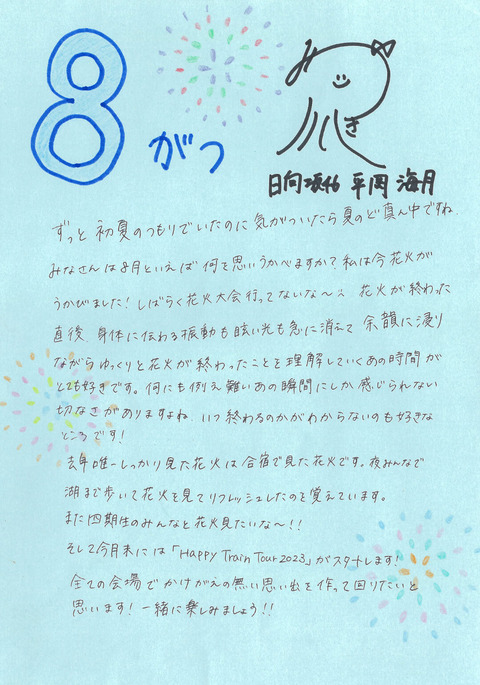 8がつ
みつき
日向坂46 平岡 海月
ずっと 初夏のつもりでいたのに 気がついたら夏のど真ん中ですね.
みなさんは8月といえば 何を思いうかべますか?私は今花火が
うかびました!しばらく花火大会行ってないな〜 花火が終わった
直後、身体に伝わる振動も眩い光も急に消えて 余韻に浸り
ながらゆっくりと花火が終わったことを理解していくあの時間が
とても好きです。何にも例え難いあの瞬間にしか感じられない
切なさがありますよね. いつ終わるのかがわからないのも好きな
ところです!
去年唯一しっかり見た花火は合宿で見た花火です。夜みんなで
湖まで歩いて花火を見てリフレッシュしたのを覚えています。
また四期生のみんなと花火見たいな〜!!
そして今月末には「Happy Train Tour 2023」がスタートします!
全ての会場でかけがえの無い思い出を作って回りたいと
思います!一緒に楽しみましょう!!